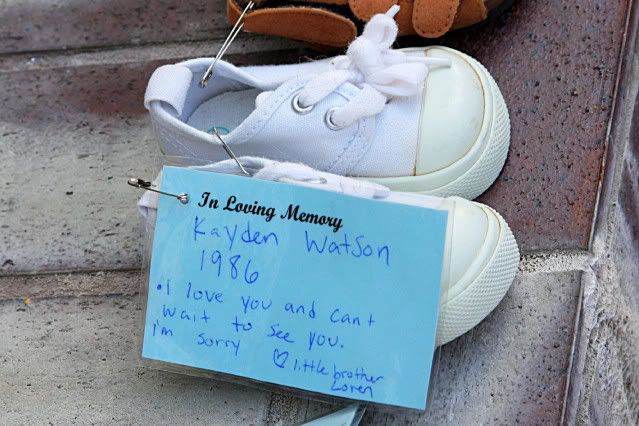 In Loving Memory
Kayden Watson
1986
•I love you and can't
wait to see you.
I'm sorry
♡ little brother
Loren